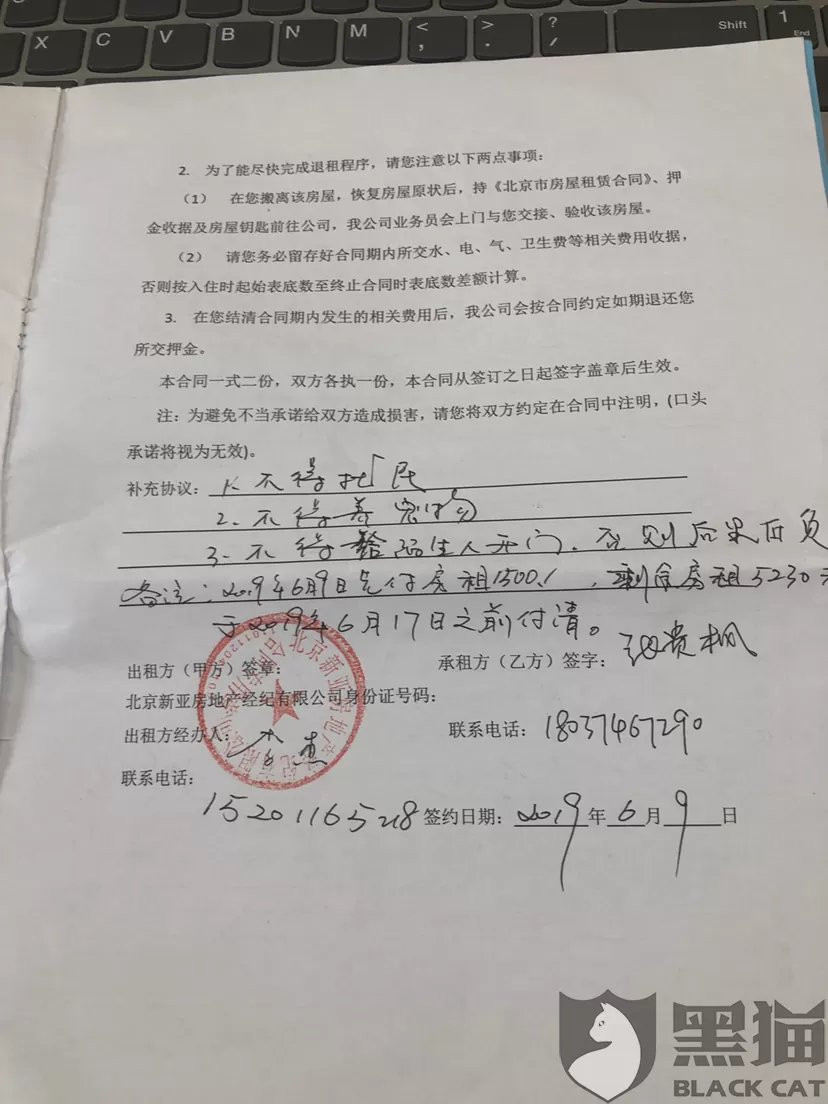 X C V B N M < , > . ? / Shift 1 End
2. 为了能尽快完成退租程序，请您注意以下两点事项：
（1） 在您搬离该房屋，恢复房屋原状后，持《北京市房屋租赁合同》、押
金收据及房屋钥匙前往公司，我公司业务员会上门与您交接、验收该房屋。
（2） 请您务必留存好合同期内所交水、电、气、卫生费等相关费用收据，
否则按入住时起始表底数至终止合同时表底数差额计算。
3. 在您结清合同期内发生的相关费用后，我公司会按合同约定如期退还您
所交押金。
本合同一式二份，双方各执一份，本合同从签订之日起签字盖章后生效。
注：为避免不当承诺给双方造成损害，请您将双方约定在合同中注明，(口头
承诺将视为无效)。
补充协议：1、不得扰民
2、不得养宠物
3、不得给陌生人开门，否则后果自负
备注：2019年6月9日先付房租1500，剩余房租5230元
于2019年6月17日之前付清。
出租方（甲方）签章：
承租方（乙方）签字：
北京新亚房地产经纪有限公司身份证号码：
出租方经办人：
联系电话：18037467290
联系电话：
15201165218 签约日期：2019年6月9日
黑猫
BLACK CAT